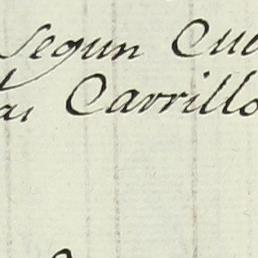 segun Cue
as Carrillo